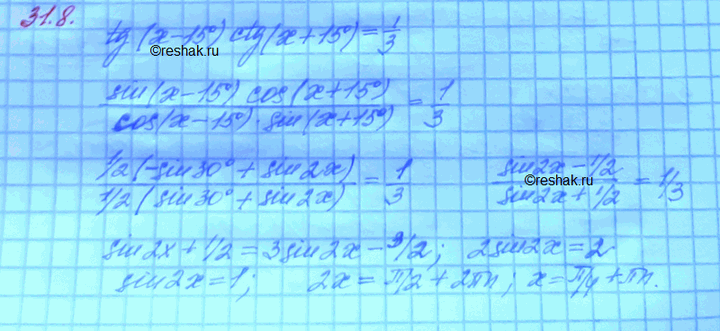 31.8.
tg(x-15°) ctg(x+15°)=1/3
©reshak.ru
sin(x-15°) cos(x+15°) / cos(x-15°)·sin(x+15°) = 1/3
1/2(-sin30°+sin2x) / 1/2(sin30°+sin2x) = 1/3   sin2x-1/2 / sin2x+1/2 = 1/3
©reshak.ru
sin2x+1/2=3sin2x-3/2; 2sin2x=2
sin2x=1; 2x=π/2+2πn; x=π/4+πn.